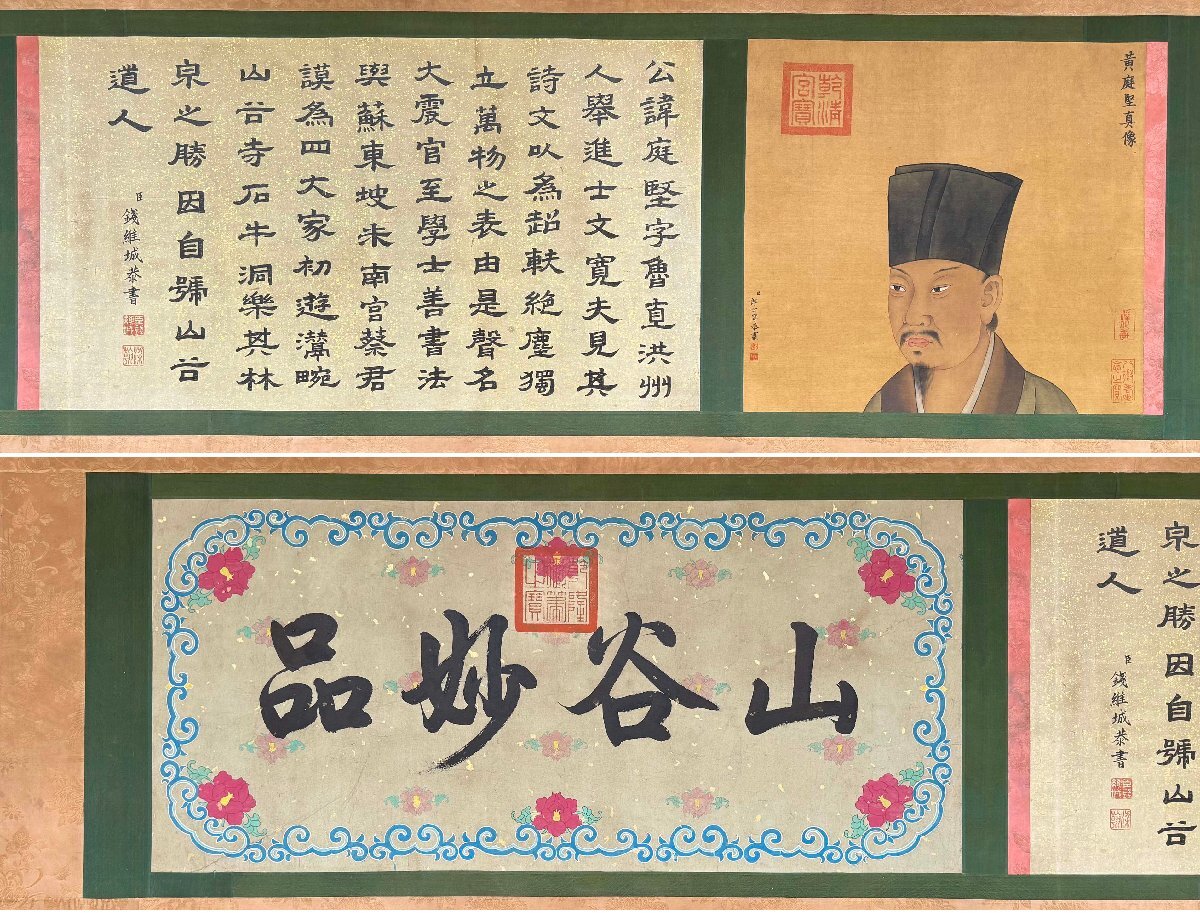 黃庭堅真像
乾清
宮寶
公諱庭堅字魯直洪州
人舉進士文寬夫見其
詩文以為超軼絕塵獨
立萬物之表由是聲名
大震官至學士善書法
與蘇東坡米南宮蔡君
謨為四大家初遊灊畹
山谷寺石牛洞樂其林
泉之勝因自號山谷
道人
臣錢維城恭書
山谷妙品
泉之勝因自號山谷
道人
臣錢維城恭書